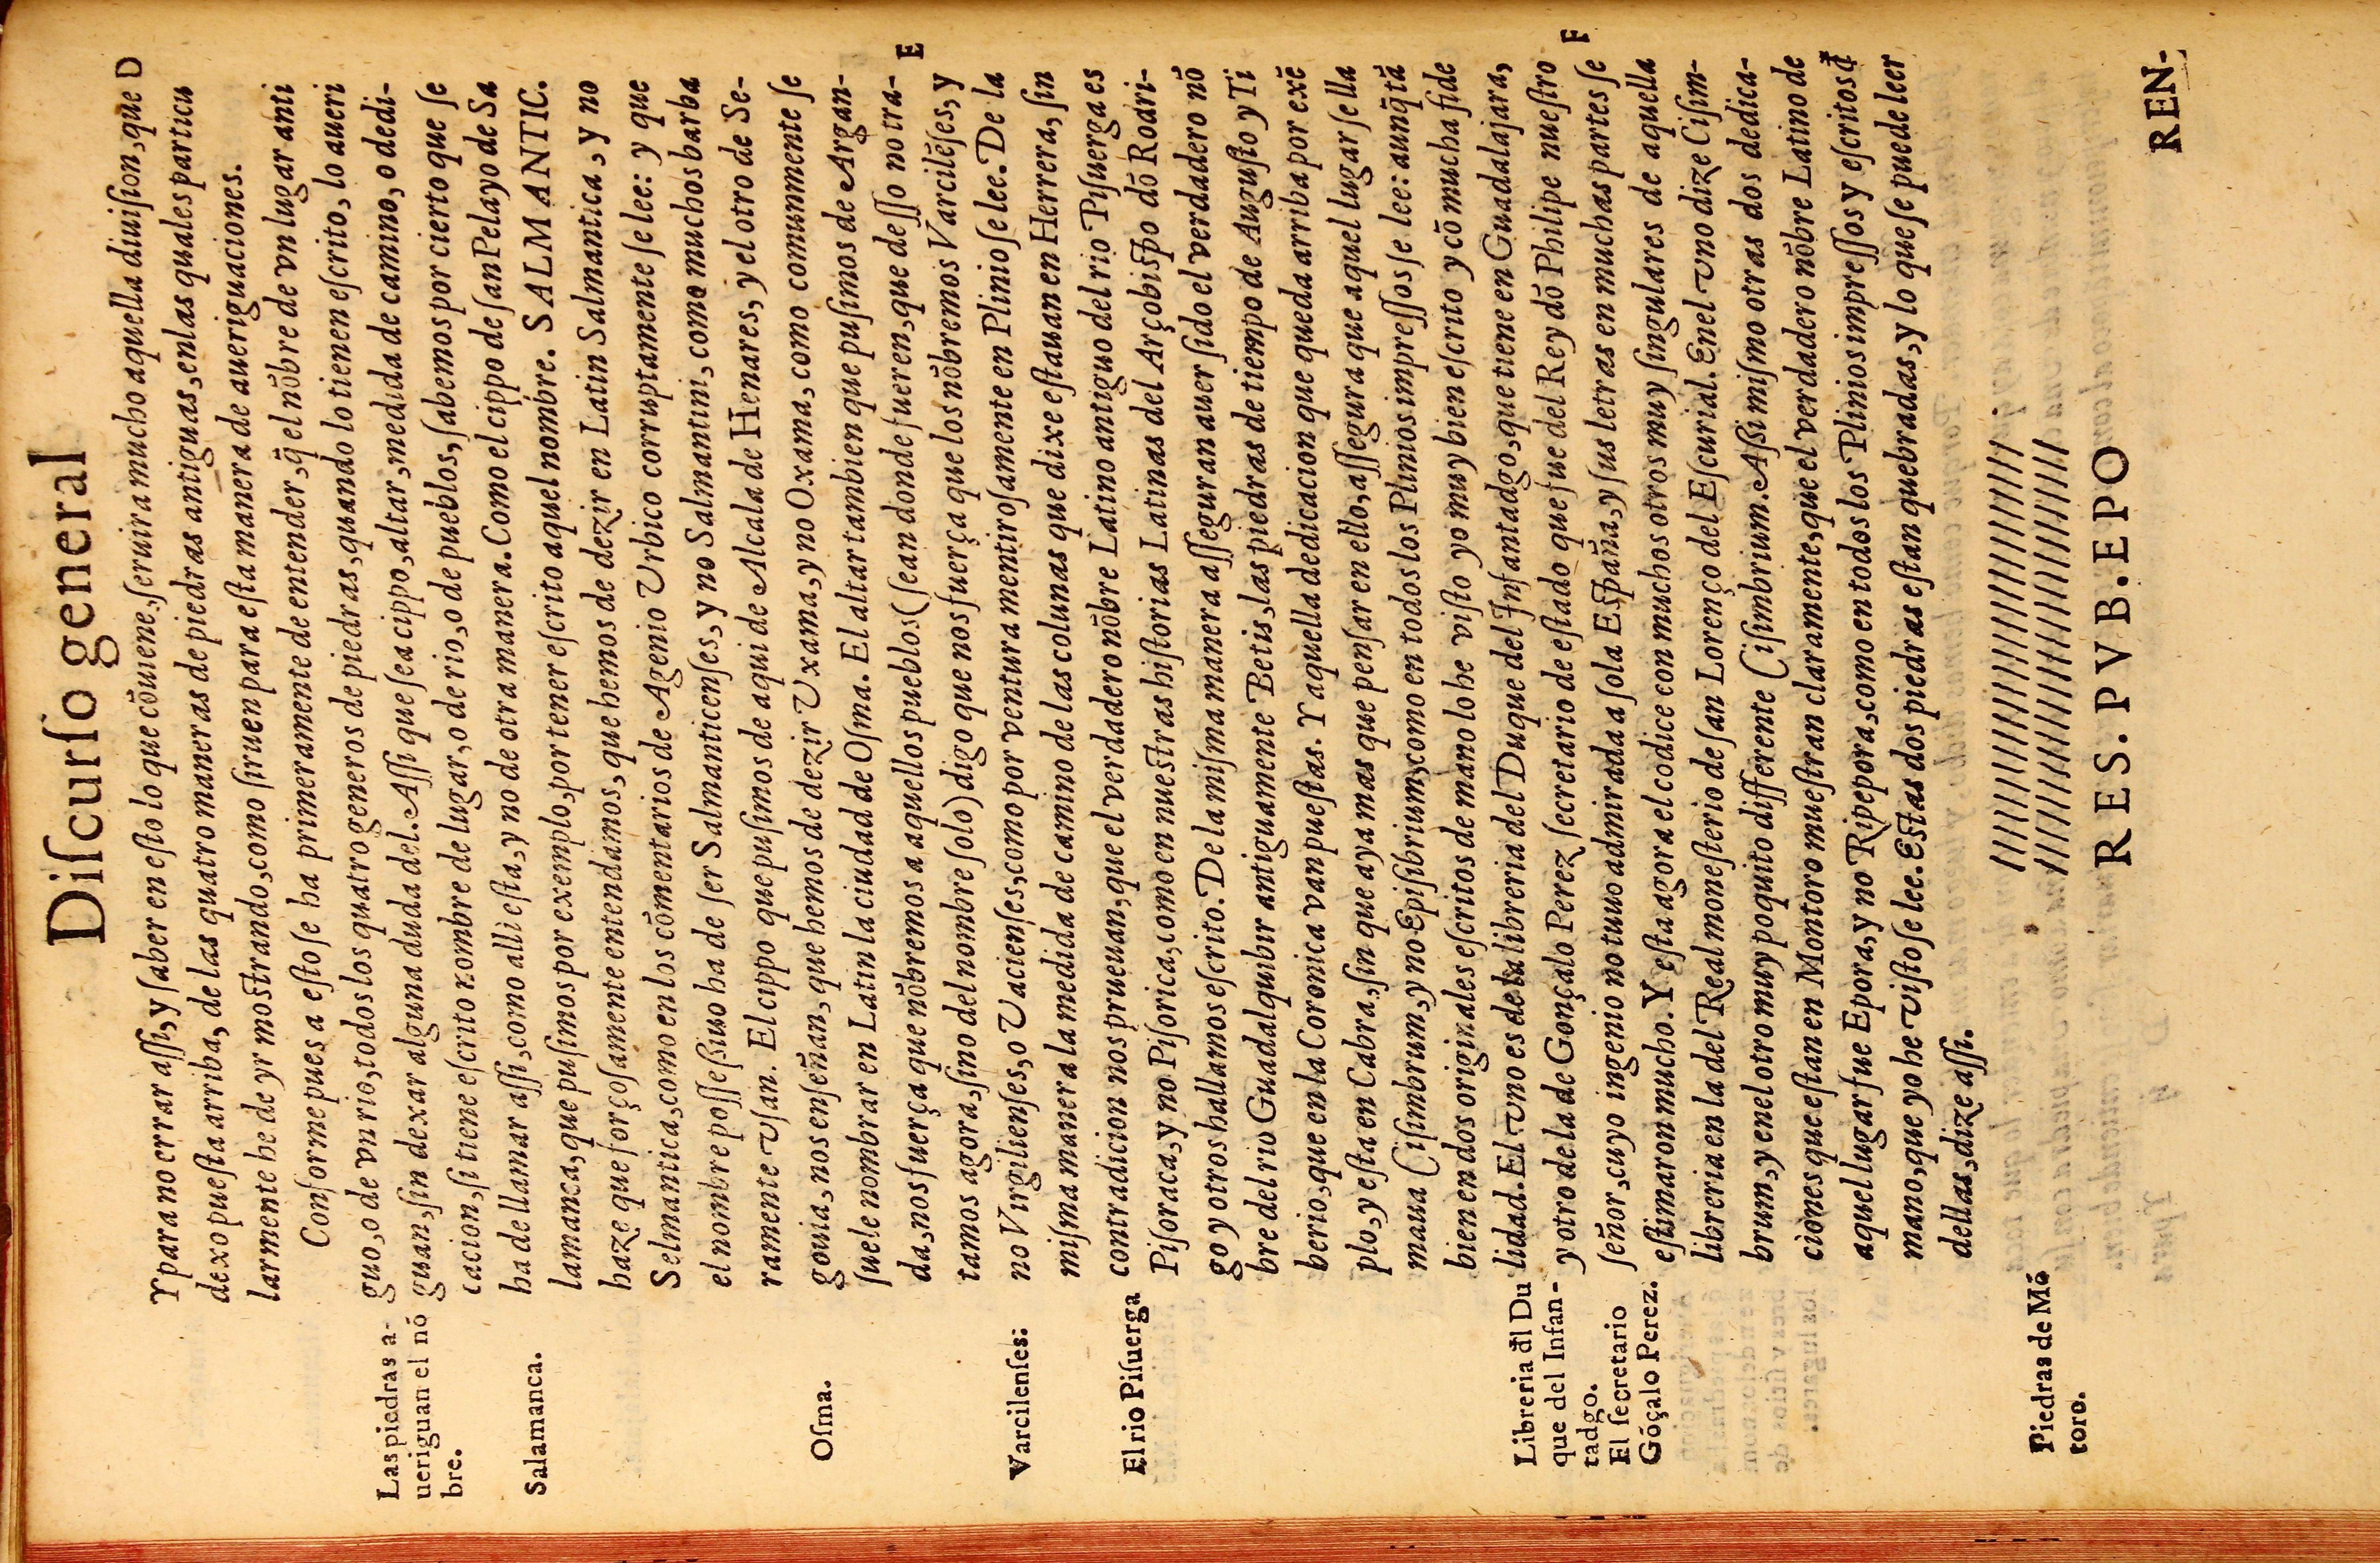 Diſcurſo general
Y para no errar aſſi, y ſaber en eſto lo que cõuiene, ſeruira mucho aquella diuiſion, que D
dexo pueſta arriba, de las quatro maneras de piedras antiguas, en las quales particu
larmente he de yr moſtrando, como ſiruen para eſta manera de aueriguaciones.
Conforme pues a eſto ſe ha primeramente de entender, q̃ el nõbre de vn lugar anti
guo, o de vn rio, todos los quatro generos de piedras, quando lo tienen eſcrito, lo aueri
guan, ſin dexar alguna duda del. Aſſi que ſea cippo, altar, medida de camino, o dedi-
cacion, ſi tiene eſcrito nombre de lugar, o de rio, o de pueblos, ſabemos por cierto que ſe
ha de llamar aſſi, como alli eſta, y no de otra manera. Como el cippo de ſan Pelayo de Sa
lamanca, que puſimos por exemplo, por tener eſcrito aquel nombre. SALMANTIC.
haze que forçoſamente entendamos, que hemos de dezir en Latin Salmantica, y no
Selmantica, como en los cõmentarios de Agenio Vrbico corruptamente ſe lee: y que
el nombre poſſeſsiuo ha de ſer Salmanticenſes, y no Salmantini, como muchos barba
ramente vſan. El cippo que puſimos de aqui de Alcala de Henares, y el otro de Se-
gouia, nos enſeñan, que hemos de dezir Vxama, y no Oxama, como comunmente ſe
ſuele nombrar en Latin la ciudad de Oſma. El altar tambien que puſimos de Argan-
da, nos fuerça que nõbremos a aquellos pueblos (ſean donde fueren, que deſſo no tra- E
tamos agora, ſino del nombre ſolo) digo que nos fuerça que los nõbremos Varcilẽſes, y
no Virgilienſes, o Vacienſes, como por ventura mentiroſamente en Plinio ſe lee. De la
miſma manera la medida de camino de las colunas que dixe eſtauan en Herrera, ſin
contradicion nos prueuan, que el verdadero nõbre Latino antiguo del rio Piſuerga es
Piſoraca, y no Piſorica, como en nueſtras hiſtorias Latinas del Arçobiſpo dõ Rodri-
go y otros hallamos eſcrito. De la miſma manera aſſeguran auer ſido el verdadero nõ
bre del rio Guadalquibir antiguamente Betis, las piedras de tiempo de Auguſto y Ti
berio, que en la Coronica van pueſtas. Y aquella dedicacion que queda arriba por exẽ
plo, y eſta en Cabra, ſin que aya mas que penſar en ello, aſſegura que aquel lugar ſe lla
maua Ciſimbrum, y no Epiſibrium, como en todos los Plinios impreſſos ſe lee: aunq̃ tã
bien en dos originales eſcritos de mano lo he viſto yo muy bien eſcrito y cõ mucha fide
lidad. El vno es de la libreria del Duque del Infantadgo, que tiene en Guadalajara,
y otro de la de Gonçalo Perez ſecretario de eſtado que fue del Rey dõ Philipe nueſtro F
ſeñor, cuyo ingenio no tuuo admirada a ſola Eſpaña, y ſus letras en muchas partes ſe
eſtimaron mucho. Y eſta agora el codice con muchos otros muy ſingulares de aquella
libreria en la del Real moneſterio de ſan Lorenço del Eſcurial. En el vno dize Ciſim-
brum, y en el otro muy poquito differente Ciſimbrium. Aſsi miſmo otras dos dedica-
ciones que eſtan en Montoro mueſtran claramente, que el verdadero nõbre Latino de
aquel lugar fue Epora, y no Ripepora, como en todos los Plinios impreſſos y eſcritos đ
mano, que yo he viſto ſe lee. Eſtas dos piedras eſtan quebradas, y lo que ſe puede leer
dellas, dize aſſi.
RES. PVB. EPO
REN-
Las piedras a-
ueriguan el nõ
bre.
Salamanca.
Oſma.
Varcilenſes:
El rio Piſuerga
Libreria đl Du
que del Infan-
tadgo.
El ſecretario
Gõçalo Perez.
Piedras de Mõ
toro.